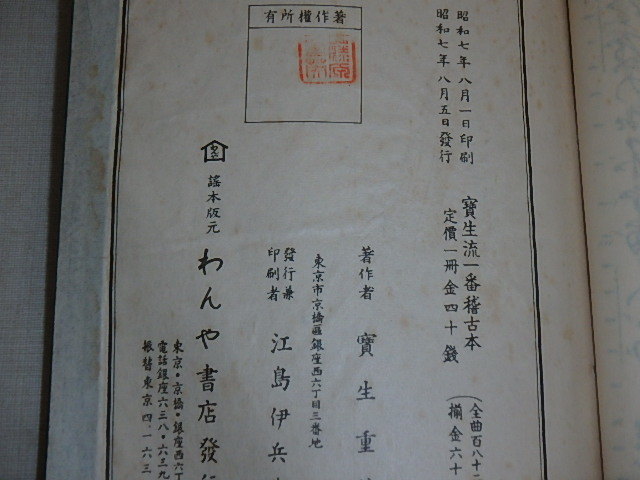 昭和七年八月一日印刷
昭和七年八月五日發行
著作權所有
寶生流一番稽古本
定價一冊金四十錢
(全曲百八十
揃金六十
著作者 寶生重
東京市京橋區銀座西六丁目三番地
發行兼
印刷者 江島伊兵
謠本版元 わんや書店發行
東京・京橋・銀座西六丁
電話銀座六三八・六三九
振替東京四・一六三